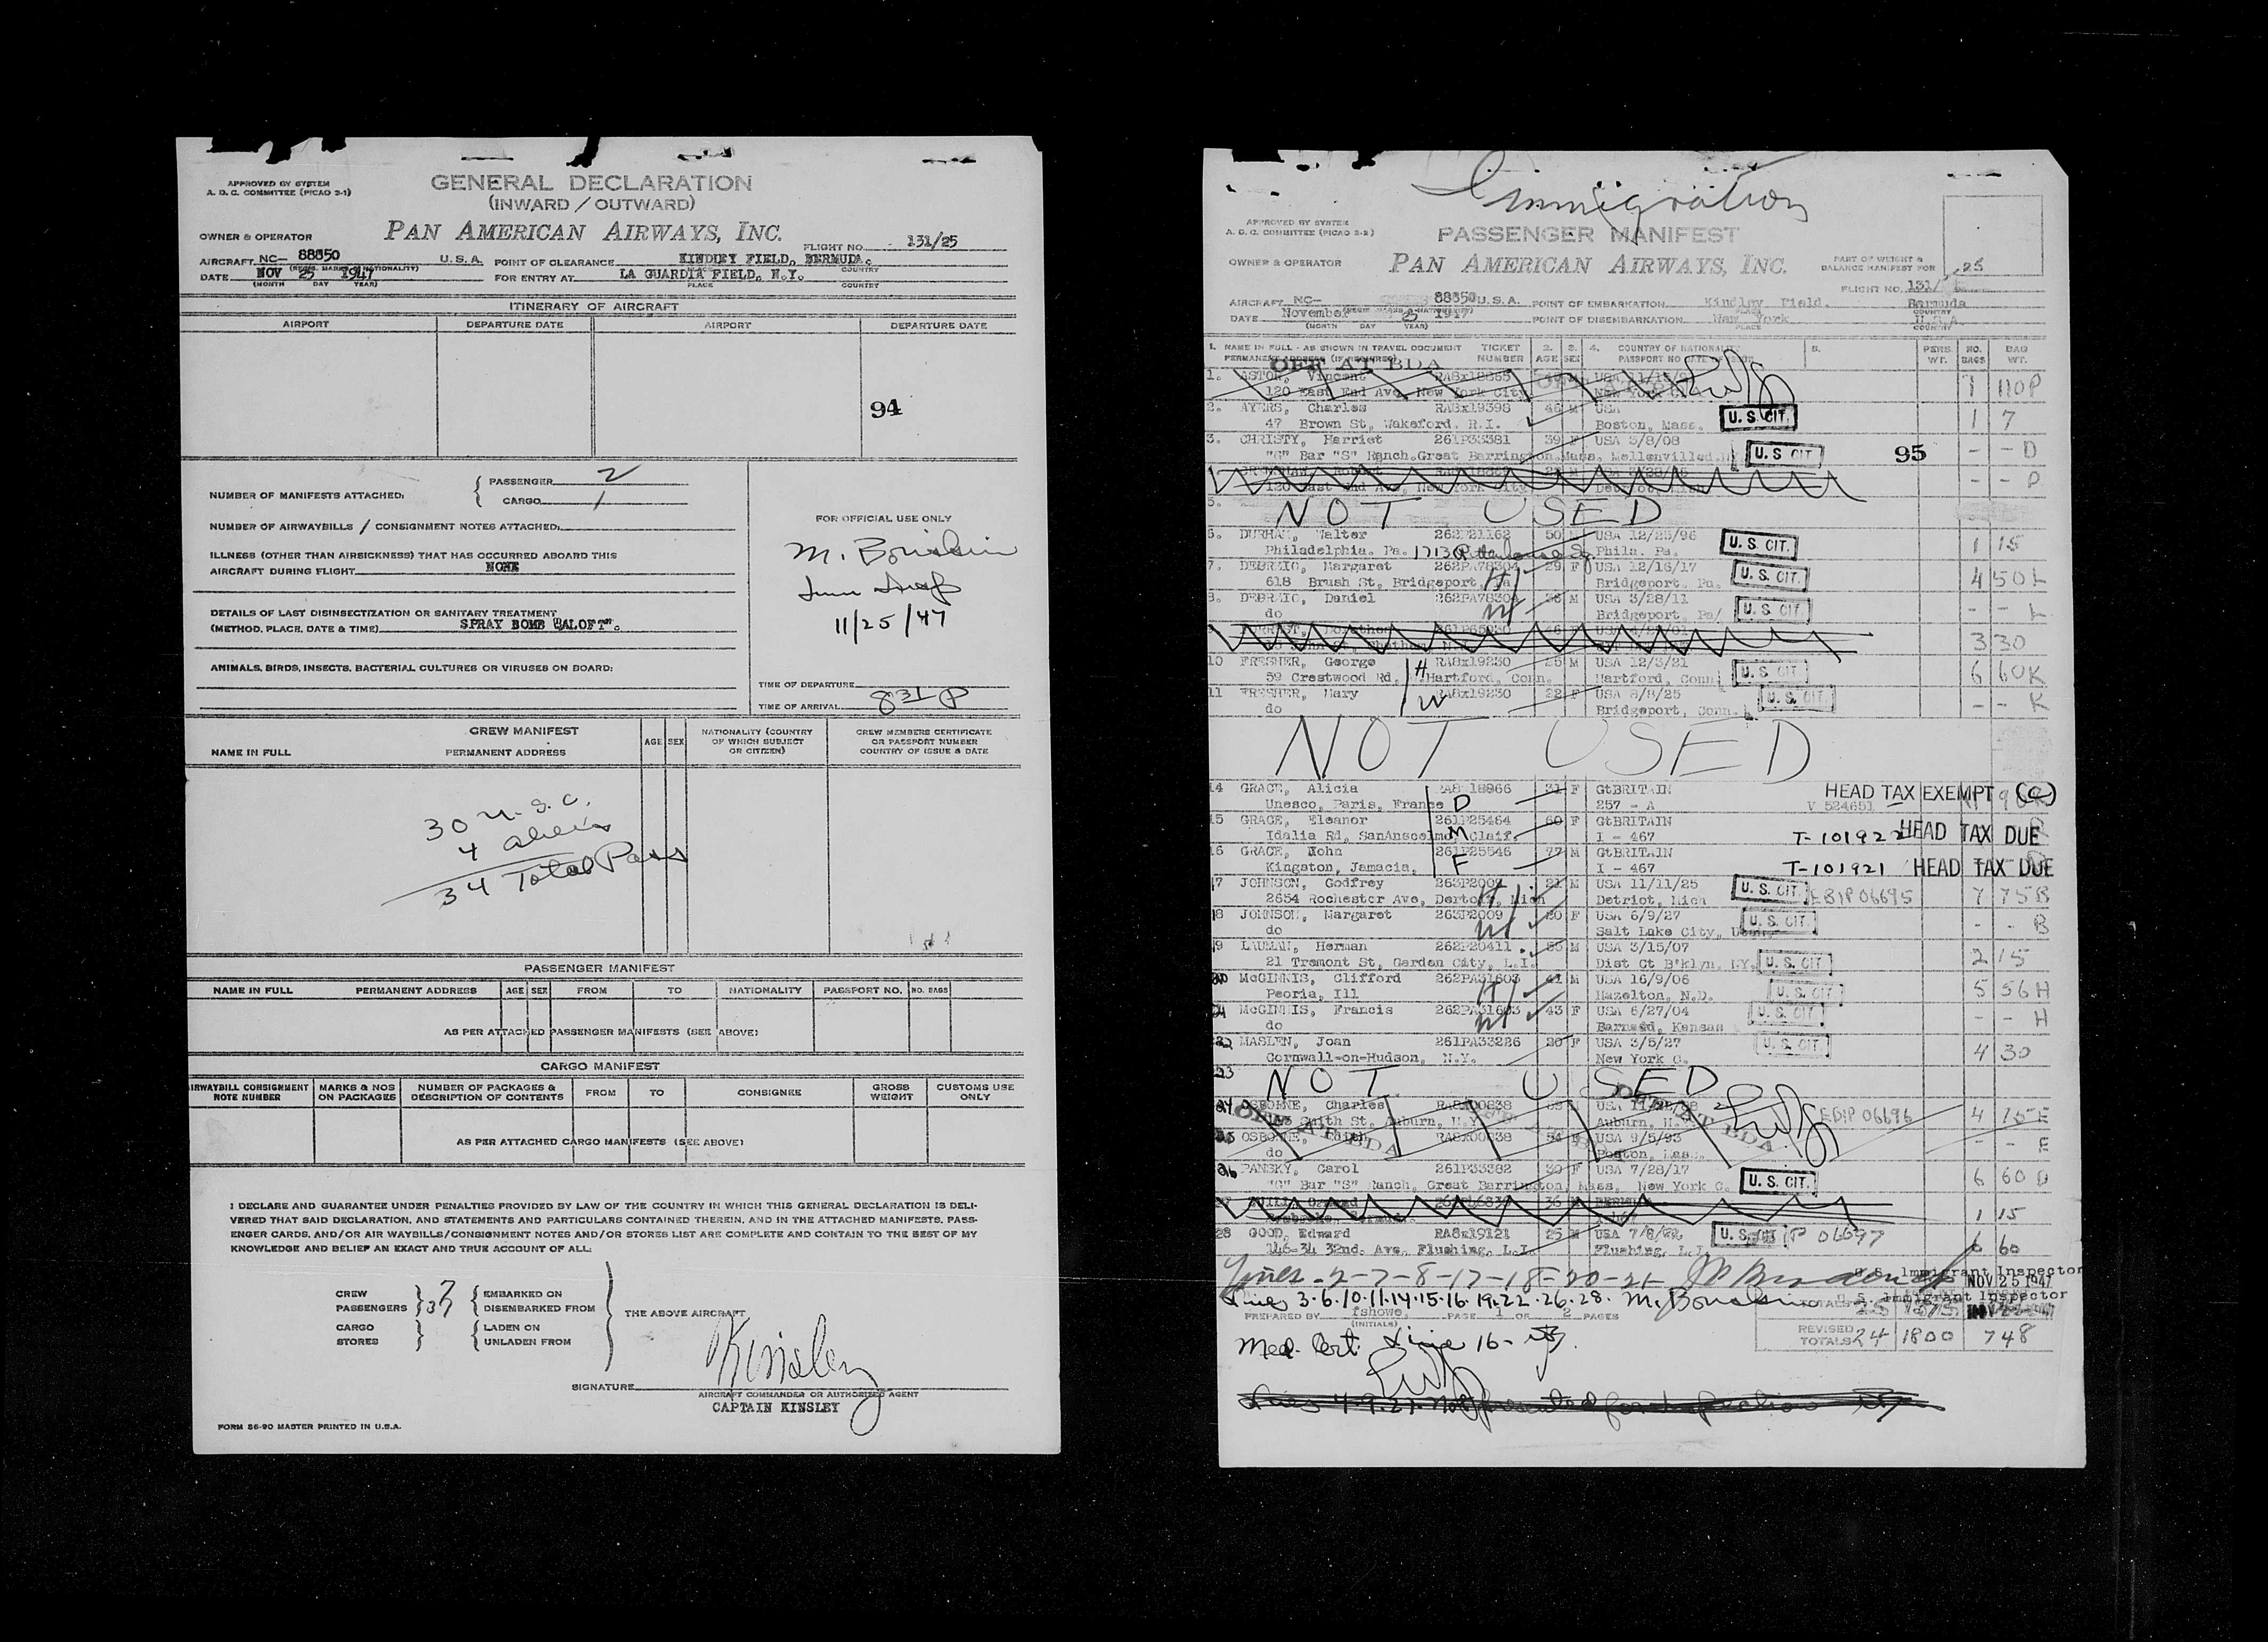 APPROVED BY SYSTEM
A. D. C. COMMITTEE (PICAO 2-1)
GENERAL DECLARATION
(INWARD / OUTWARD)
OWNER & OPERATOR
PAN AMERICAN AIRWAYS, INC.
FLIGHT NO. 131/25
AIRCRAFT NC- 88850 U.S.A. POINT OF CLEARANCE KINDLEY FIELD, BERMUDA.
DATE NOV 25 1947 FOR ENTRY AT LA GUARDIA FIELD, N.Y.
(MONTH DAY YEAR) PLACE COUNTRY
ITINERARY OF AIRCRAFT
AIRPORT DEPARTURE DATE AIRPORT DEPARTURE DATE
94
NUMBER OF MANIFESTS ATTACHED: PASSENGER 2
CARGO 1
NUMBER OF AIRWAYBILLS / CONSIGNMENT NOTES ATTACHED:
ILLNESS (OTHER THAN AIRSICKNESS) THAT HAS OCCURRED ABOARD THIS
AIRCRAFT DURING FLIGHT NONE
DETAILS OF LAST DISINSECTIZATION OR SANITARY TREATMENT
(METHOD, PLACE, DATE & TIME) SPRAY BOMB "ALOFT".
ANIMALS, BIRDS, INSECTS, BACTERIAL CULTURES OR VIRUSES ON BOARD:
FOR OFFICIAL USE ONLY
11/25/47
TIME OF DEPARTURE
TIME OF ARRIVAL 831 P
CREW MANIFEST
NAME IN FULL PERMANENT ADDRESS AGE SEX NATIONALITY (COUNTRY OF WHICH SUBJECT OR CITIZEN) CREW MEMBERS CERTIFICATE OR PASSPORT NUMBER COUNTRY OF ISSUE & DATE
30 U.S.C.
4 aliens
34 Total Pass
PASSENGER MANIFEST
NAME IN FULL PERMANENT ADDRESS AGE SEX FROM TO NATIONALITY PASSPORT NO. NO. BAGS
AS PER ATTACHED PASSENGER MANIFESTS (SEE ABOVE)
CARGO MANIFEST
AIRWAYBILL CONSIGNMENT NOTE NUMBER MARKS & NOS ON PACKAGES NUMBER OF PACKAGES & DESCRIPTION OF CONTENTS FROM TO CONSIGNEE GROSS WEIGHT CUSTOMS USE ONLY
AS PER ATTACHED CARGO MANIFESTS (SEE ABOVE)
I DECLARE AND GUARANTEE UNDER PENALTIES PROVIDED BY LAW OF THE COUNTRY IN WHICH THIS GENERAL DECLARATION IS DELI-
VERED THAT SAID DECLARATION, AND STATEMENTS AND PARTICULARS CONTAINED THEREIN, AND IN THE ATTACHED MANIFESTS, PASS-
ENGER CARDS, AND/OR AIR WAYBILLS/CONSIGNMENT NOTES AND/OR STORES LIST ARE COMPLETE AND CONTAIN TO THE BEST OF MY
KNOWLEDGE AND BELIEF AN EXACT AND TRUE ACCOUNT OF ALL:
CREW EMBARKED ON
PASSENGERS DISEMBARKED FROM
THE ABOVE AIRCRAFT
CARGO LADEN ON
STORES UNLADEN FROM
Kinsley
SIGNATURE
AIRCRAFT COMMANDER OR AUTHORIZED AGENT
CAPTAIN KINSLEY
FORM 86-90 MASTER PRINTED IN U.S.A.
Immigration
APPROVED BY SYSTEM
A. D. C. COMMITTEE (PICAO 2-2)
PASSENGER MANIFEST
OWNER & OPERATOR
PAN AMERICAN AIRWAYS, INC.
PART OF WEIGHT &
BALANCE MANIFEST FOR
FLIGHT NO. 131/ 25
AIRCRAFT NC- 88850 U.S.A. POINT OF EMBARKATION Kindley Field, Bermuda
DATE November 25 1947 POINT OF DISEMBARKATION New York U.S.A.
(MONTH DAY YEAR) PLACE COUNTRY
1. NAME IN FULL - AS SHOWN IN TRAVEL DOCUMENT TICKET NUMBER 2. AGE 3. SEX 4. COUNTRY OF NATIONALITY 5. PERS. WT. NO. BAGS BAG WT.
OFF AT BDA
1. ASTOR, Vincent RA8x18865 1 110P
120 East End Ave, New York City
2. AYERS, Charles RA8x19398 46 M USA 1 7
47 Brown St, Wakeford, R.I. Boston, Mass. U. S. CIT.
3. CHRISTY, Harriet 261P33381 39 F USA 3/8/08 95 - - D
"G" Bar "S" Ranch, Great Barrington, Mass. U. S. CIT
- - P
120 East End Ave, New York City
5. NOT USED
6. DURHAM, Walter 262P21162 50 USA 12/25/96 U. S. CIT. 1 15
Philadelphia, Pa. 1713 Phila. Pa.
7. DEBREIC, Margaret 262PA78304 29 F USA 12/16/17 U. S. CIT. 4 50 L
618 Brush St, Bridgeport, Pa H Bridgeport, Pa.
8. DEBREIC, Daniel M USA 3/28/11 U. S. CIT. - - L
do W Bridgeport, Pa/
3 30
10 FRESHER, George RA8x19230 25 M USA 12/3/21 U. S. CIT 6 60K
59 Crestwood Rd, Hartford, Conn. H Hartford, Conn
11 FRESHER, Mary RA8x19230 22 F USA 8/8/25 U. S. CIT. - - K
do W Bridgeport, Conn.
NOT USED
14 GRACE, Alicia 31 F GtBRITAIN HEAD TAX EXEMPT (C)
Unesco, Paris, France D 257 - A V 524651
15 GRACE, Eleanor 261P25464 60 F GtBRITAIN
Idalia Rd, SanAnscelmo, Claif. M I - 467 T-101922 HEAD TAX DUE
16 GRACE, John 261P25546 77 M GtBRITAIN
Kingston, Jamacia, F I - 467 T-101921 HEAD TAX DUE
17 JOHNSON, Godfrey 263P2009 21 M USA 11/11/25 U. S. CIT. EBIP 06695 7 75B
2654 Rochester Ave, Mich H Detriot, Mich
18 JOHNSON, Margaret 263P2009 20 F USA 6/9/27 U. S. CIT. - - B
do W Salt Lake City,
19 LAUMAN, Herman 262P20411 M USA 3/15/07 2 15
21 Tremont St, Garden City, L.I. Dist Ct B'klyn, NY. U. S. CIT
20 McGINNIS, Clifford 262PA31603 41 M USA 16/9/06 5 56 H
Peoria, Ill H Hazelton, N.D. U. S. CIT
21 McGINNIS, Francis 262PA31603 43 F USA 6/27/04 U. S. CIT. - - H
do W Kansas
22 MASLEN, Joan 261PA33226 20 F USA 3/5/27 U. S. CIT. 4 30
Cornwall-on-Hudson, N.Y. New York C.
23 NOT USED
24 OSBORNE, Charles RA8X00838 EBIP 06696 4 75 E
Smith St, Auburn, N.Y. Auburn, N.Y. OFF AT BDA
25 OSBORNE, Edith RA8X00838 54 F USA 9/5/93 - - E
do Boston, Mass.
26 PANSKY, Carol 261P33382 30 F USA 7/28/17 6 60 D
"G" Bar "S" Ranch, Great Barrington, Mass. New York C. U. S. CIT.
36 M 1 15
28 GOOD, Edward RA8x19121 25 M USA U. S. CIT P 06697 6 60
146-34 32nd. Ave, Flushing, L.I. Flushing, L.I.
Lines - 2-7-8-17-18-20-21 U.S. Immigrant Inspector
NOV 25 1947
Lines 3.6.10.11.14.15.16.19.22.26.28. U.S. Immigrant Inspector
PREPARED BY fshowe PAGE 1 OF 2 PAGES TOTALS
(INITIALS)
REVISED TOTALS 24 1800 748
Med. Cert. Line 16